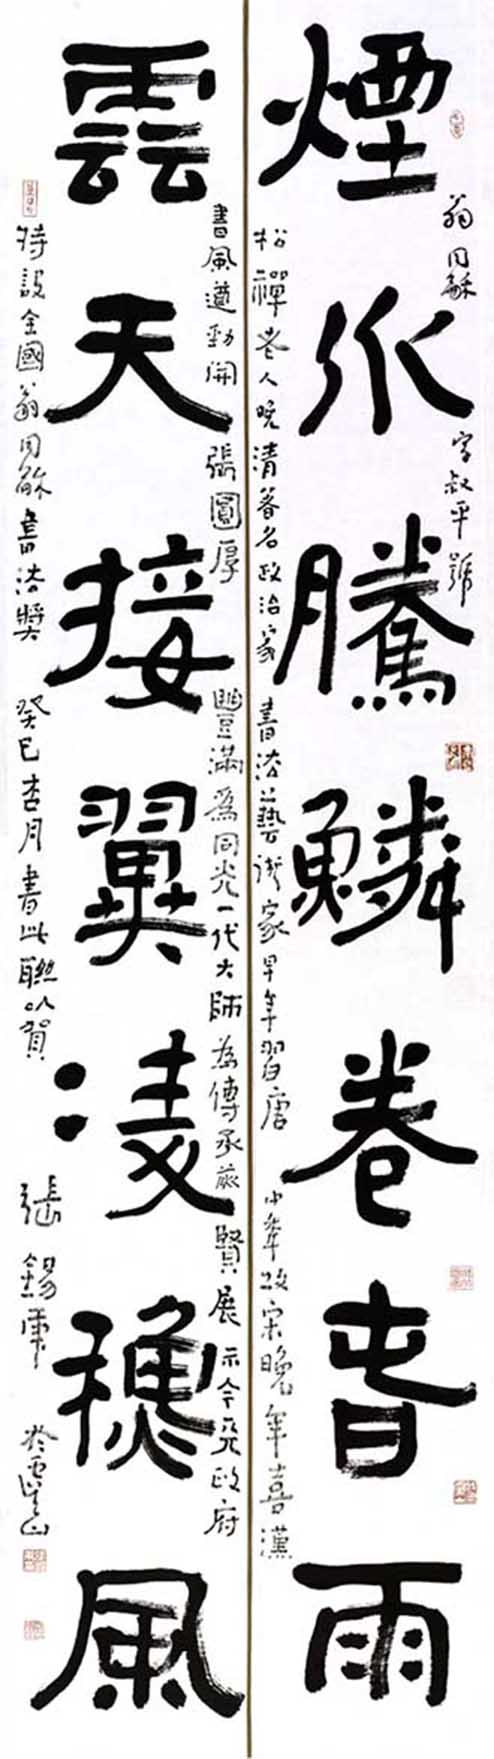 煙水騰鱗卷旾雨
翁同龢字叔平號
松禪老人晚清著名政治家書法藝術家早年習唐中年攻宋晚年喜漢
雲天接翼凌穐風
書風遒勁開張圓厚豐滿為同光一代大師為傳承賢展示今政府
特設全國翁同龢書法獎癸巳杏月書此聯以賀張錫庚於虞山